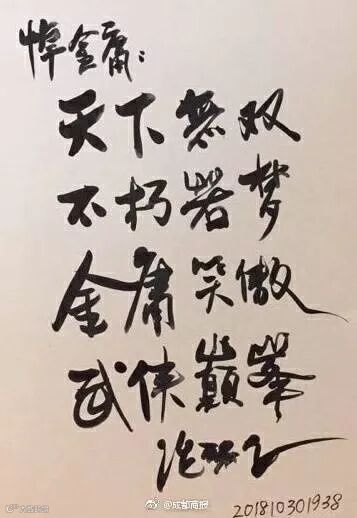 悼金庸：
天下無双
不朽若梦
金庸笑傲
武侠巔峯
@成都商报
201810301938